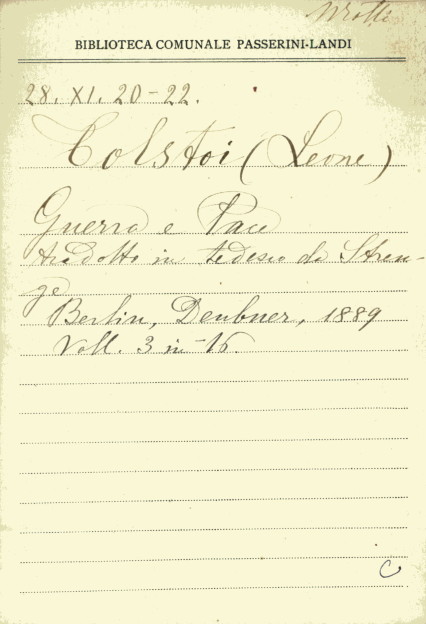 BIBLIOTECA COMUNALE PASSERINI-LANDI
28. XI. 20-22.
Tolstoi (Leone)
Guerra e Pace
tradotto in tedesco da Stren-
ge
Berlin, Deubner, 1889
Voll. 3 in-16.
C